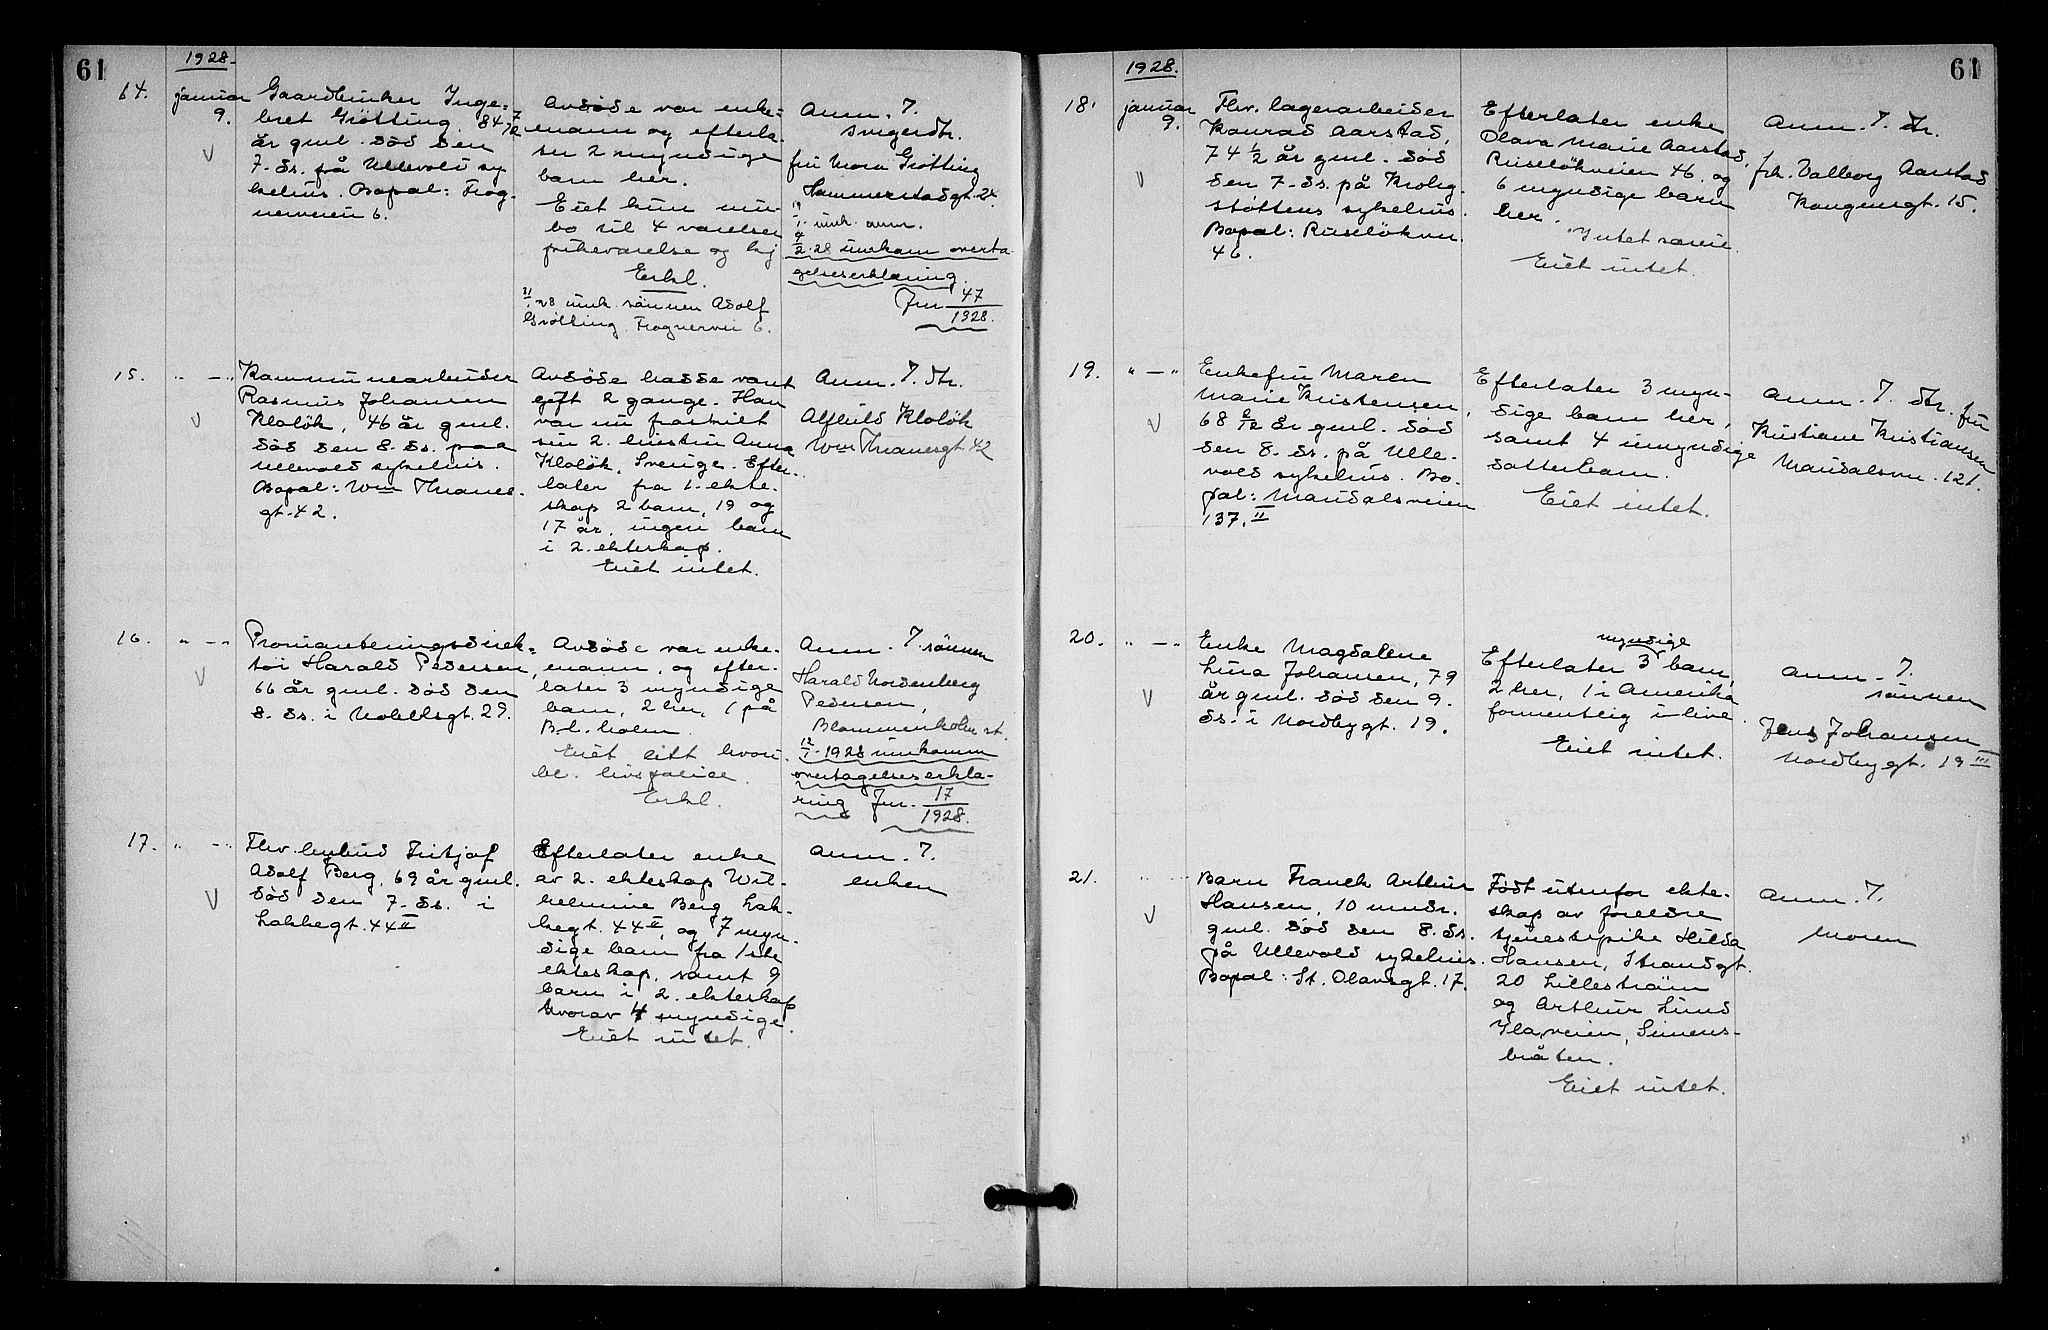 61
1928.
14.
januar
9.
V
Gaardbruker Inge=
bret Grötting. 84 7/12
år gml. död den
7. ds. på Ullevold sy
kehus. Bopæl: Frog-
nerveien 6.
Avdöde var enke=
mann og efterla-
ter 2 myndige
barn her.
Eiet kun inn-
bo til 4 værelser
pikeværelse og kj
Erkl.
31/1 28 innk. sönnen Adolf
Grötting Frognervei 6.
Anm. T.
svigerdtr.
fru Mora Grötting
Hammerstadgt. 24.
innk. anm.
9/2 28 innkom overta
gelseserklæring.
Jnr 47/1928.
15.
" — "
V
Kommunearbeider
Rasmus Johansen
Kloløk, 46 år gml.
död den 8. ds. paa
Ullevold sykehus.
Bopæl: Wm Thranes.
gt. 42.
Avdöde hadde vært
gift 2 gange. Han
var nu fraskilt
sin 2. hustru Anna
Kloløk, Sverige. Efter-
later fra 1. ekte-
skap 2 barn, 19 og
17 år, ingen barn
i 2. ekteskap.
Eiet intet.
Anm. T. dtr.
Alfhild Kloløk
Wm Thranesgt 42
16.
" — "
V
Provianteringsdirek=
tör Harald Pedersen,
66 år gml. död den
8. ds. i Nobelsgt. 29.
Avdöde var enke-
mann, og efter-
later 3 myndige
barn, 2 her, 1 på
Bl. holm.
Eiet litt hvori-
bl. livspolice.
Erkl.
Anm. T. sönnen
Harald Nordenberg
Pedersen,
Blommenholm st.
12/1-1928 innkomm
overtagelseserklæ-
ring Jnr. 17/1928.
17.
" — "
V
Fhv. bybud Fritjof
Adolf Berg, 69 år gml.
död den 7. ds. i
Lakkegt. 44 II
Efterlater enke
av 2. ekteskap Wil-
helmine Berg Lak-
kegt. 44 II, og 7 myn-
dige barn fra 1ste
ekteskap, samt 9
barn i 2. ekteskap
hvorav 4 myndige.
Eiet intet.
Anm. T.
enken
1928.
61
18.
januar
9.
V
Fhv. lagerarbeider
Konrad Aarstad,
74 1/2 år gml. död
den 7. ds. på Krohg-
stöttens sykehus.
Bopæl: Ruselökvn.
46.
Efterlater enke
Olava Marie Aarstad,
Ruselökveien 46. og
6 myndige barn
her.
Intet særeie.
Eiet intet.
Anm. T. dtr.
frk. Valborg Aarstad
Kongensgt. 15.
19.
" — "
V
Enkefru Maren
Marie Kristensen,
68 6/12 år gml. död
den 8. ds. på Ulle-
vold sykehus. Bo-
pæl: Maridalsveien
137. II
Efterlater 3 myn-
dige barn her,
samt 4 umyndige
datterbarn.
Eiet intet.
Anm. T. dtr. fru
Kristiane Kristiansen
Maridalsvn. 121.
20.
" — "
V
Enke Magdalene
Lina Johansen, 79
år gml. död den 9.
ds. i Nordbygt. 19.
myndige
Efterlater 3 barn,
2 her, 1 i Amerika
formentlig i live.
Eiet intet.
Anm. T.
sönnen
Jens Johansen
Nordbygt. 19 III
21.
" — "
V
Barn Franck Arthur
Hansen, 10 mndr.
gml. död den 8. ds.
på Ullevold sykehus.
Bopæl: St. Olavsgt. 17.
Født utenfor ekte-
skap av foreldre
tjenestepike Hilda
Hansen, Strandgt.
20 Lilleström
og Arthur Lund
Ilaveien, Simens-
bråten.
Eiet intet.
Anm. T.
Moren